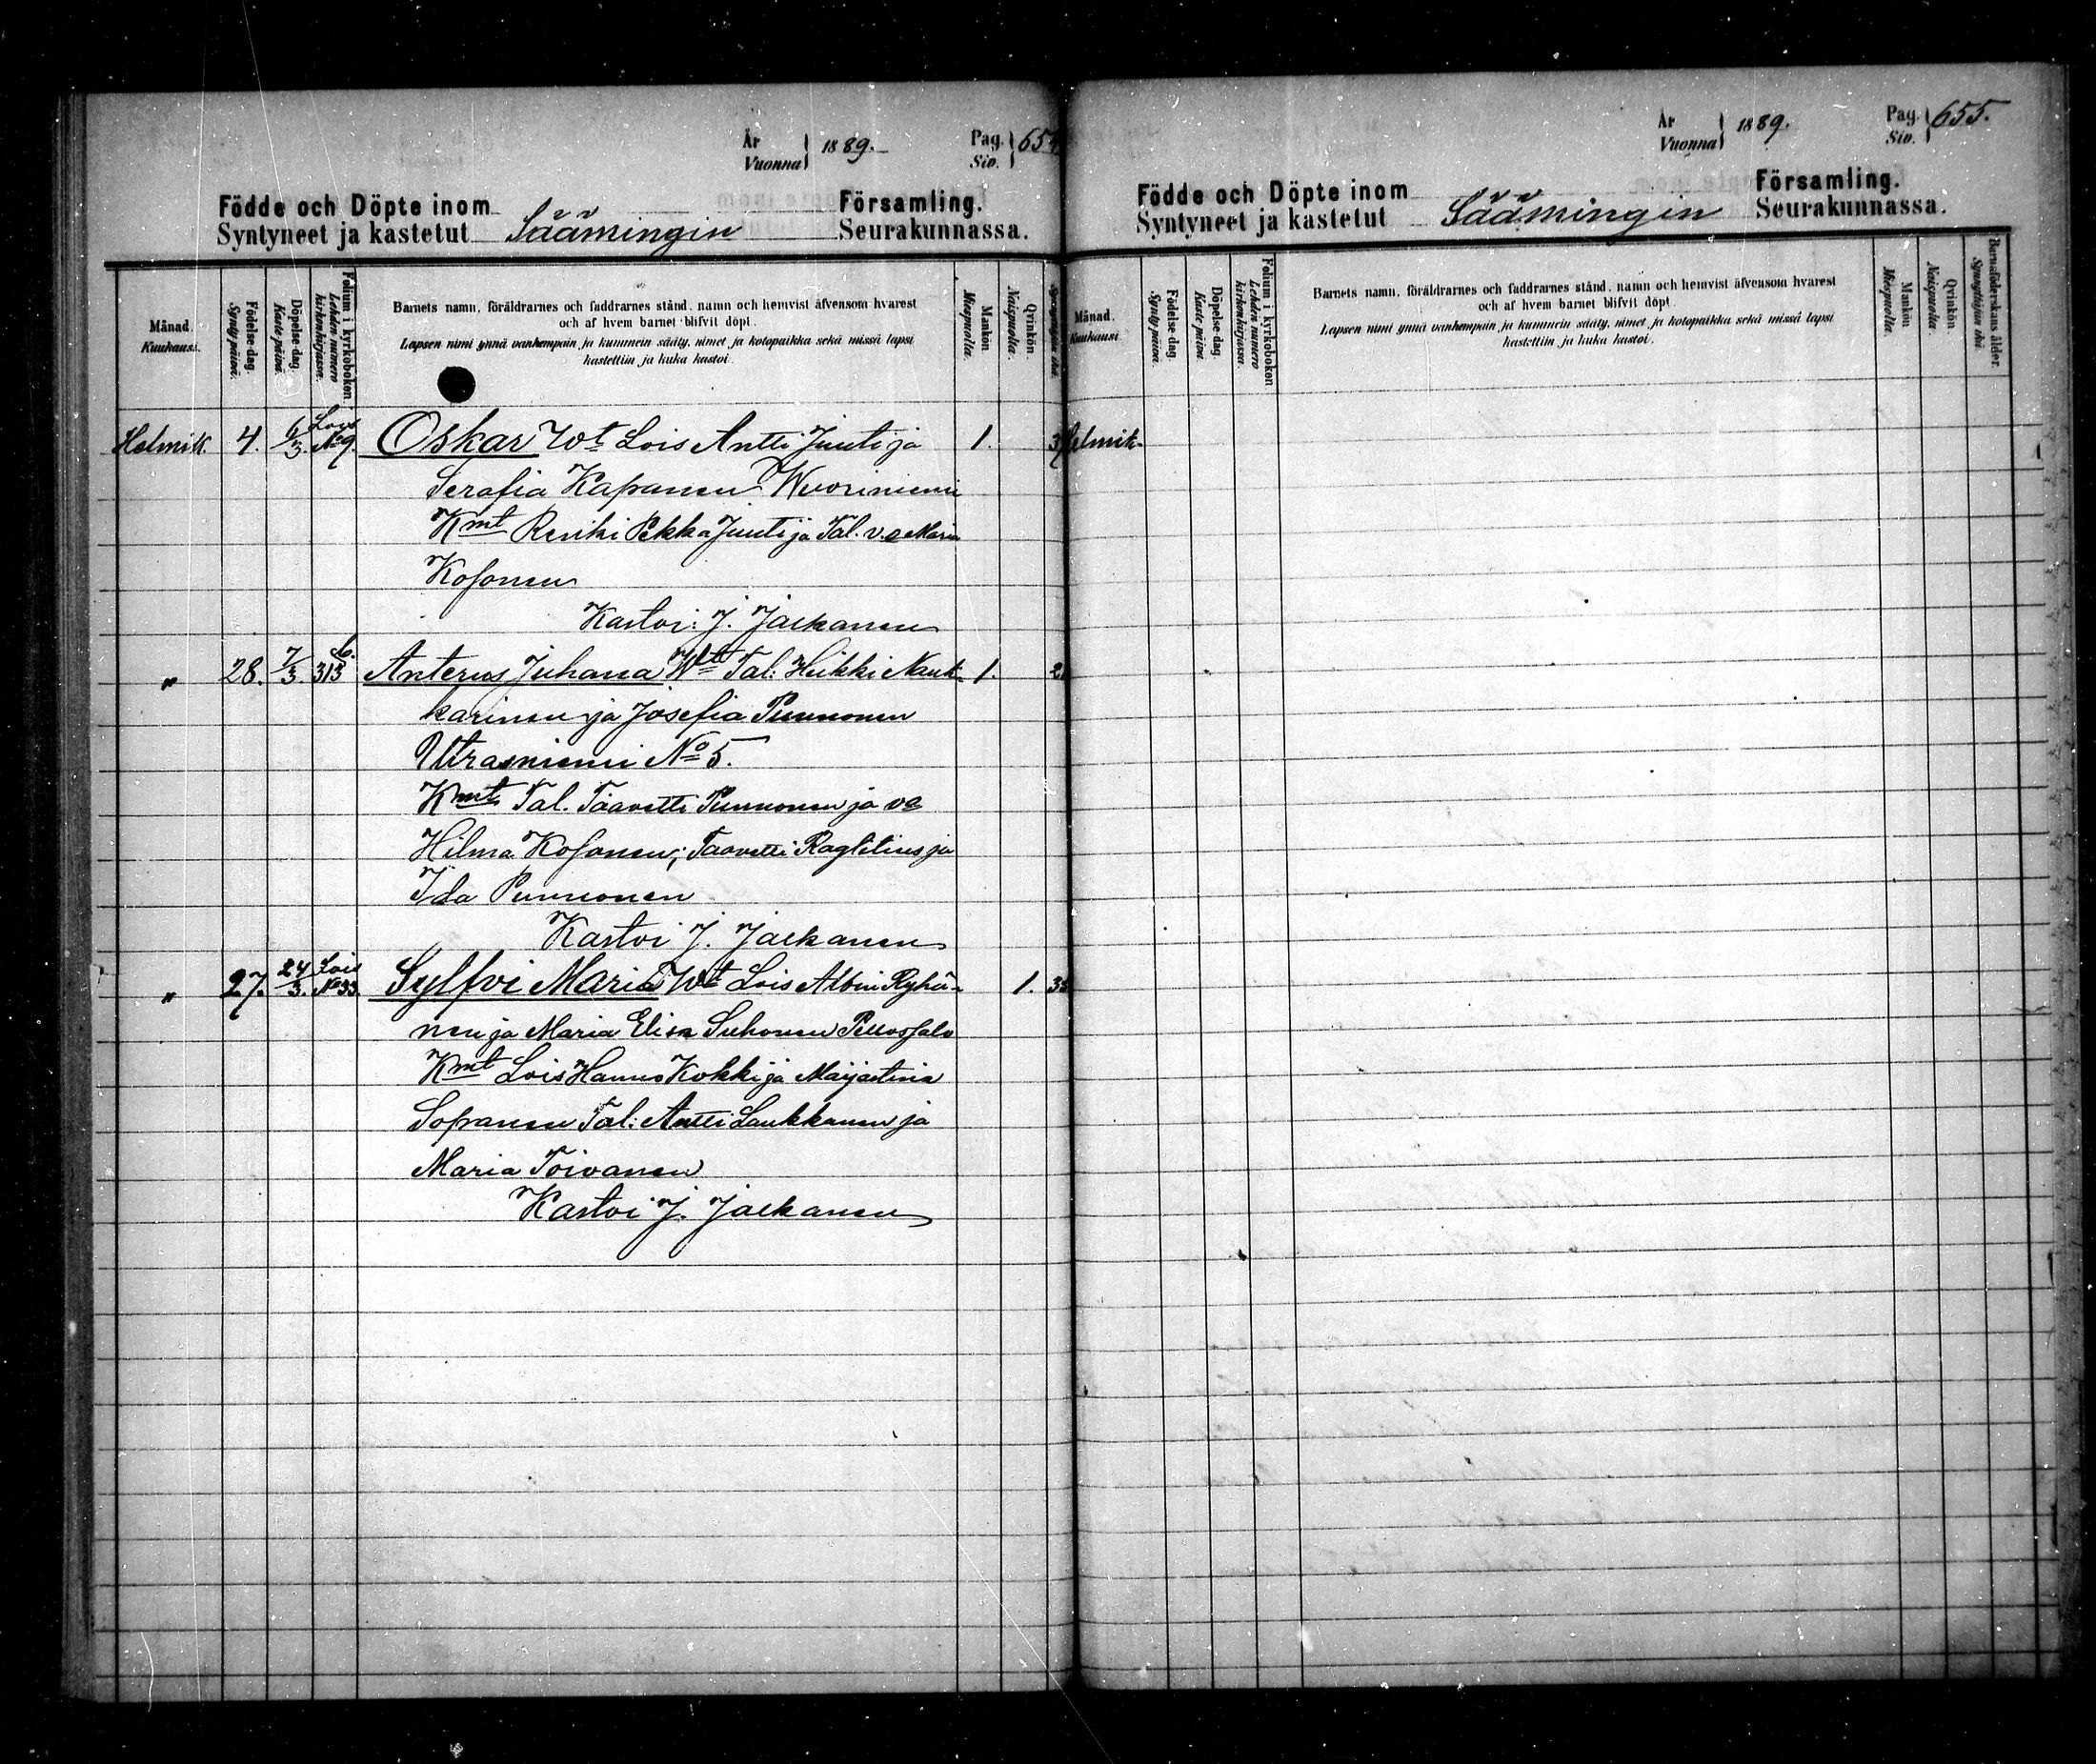 År
Vuonna 1889.
Pag.
Siv. 654
Födde och Döpte inom Församling.
Syntyneet ja kastetut Säämingin Seurakunnassa.
Månad.
Kuukausi.
Födelse-dag.
Syntypäivä.
Döpelse-dag.
Kastepäivä.
Folium i kyrkoboken
Lehden numero
kirkonkirjassa.
Barnets namn, föräldrarnes och faddrarnes stånd, namn och hemvist äfvensom hvarest
och af hvem barnet blifvit döpt.
Lapsen nimi ynnä vanhempain ja kummein sääty, nimet ja kotopaikka sekä missä lapsi
kastettiin ja kuka kastoi.
Mankön
Miespuolta.
Qvinkön.
Naispuolta.
Helmik. 4. 6/3. Lois No 9. Oskar Wt Lois Antti Juuti ja 1. 3
Serafia Kapanen Wuoriniemi
Kmt Renki Pekka Juuti ja Tal. v.o Maria
Kosonen
Kastoi: J. Jalkanen
" 28. 7/3. 313 Anterus Juhana Wtt Tal: Heikki Nauk- 1. 2
karinen ja Josefia Punnonen
Utrasniemi No 5.
Kmt Tal. Taavetti Punnonen ja vo
Hilma Kosonen; Taavetti Raglitius ja
Ida Punnonen
Kastoi J. Jalkanen
" 27. 24/3. Lois No 33. Sylfvi Maria Wt Lois Albin Ryhä- 1. 3
nen ja Maria Elisa Suhonen Pellossalo
Kmt Lois Hannes Kokki ja Maijastina
Sopanen Tal: Antti Laukkanen ja
Maria Toivanen
Kastoi J. Jalkanen
År
Vuonna 1889.
Pag.
Siv. 655.
Födde och Döpte inom Församling.
Syntyneet ja kastetut Säämingin Seurakunnassa.
Månad.
Kuukausi
Födelse-dag.
Syntypäivä.
Döpelse-dag.
Kastepäivä.
Folium i kyrkoboken
Lehden numero
kirkonkirjassa.
Barnets namn, föräldrarnes och faddrarnes stånd, namn och hemvist äfvensom hvarest
och af hvem barnet blifvit döpt.
Lapsen nimi ynnä vanhempain ja kummein sääty, nimet ja kotopaikka sekä missä lapsi
kastettiin ja kuka kastoi.
Mankön
Miespuolta.
Qvinkön.
Naispuolta.
Barnaföderskans ålder.
Synnyttäjän ikä
Helmik.